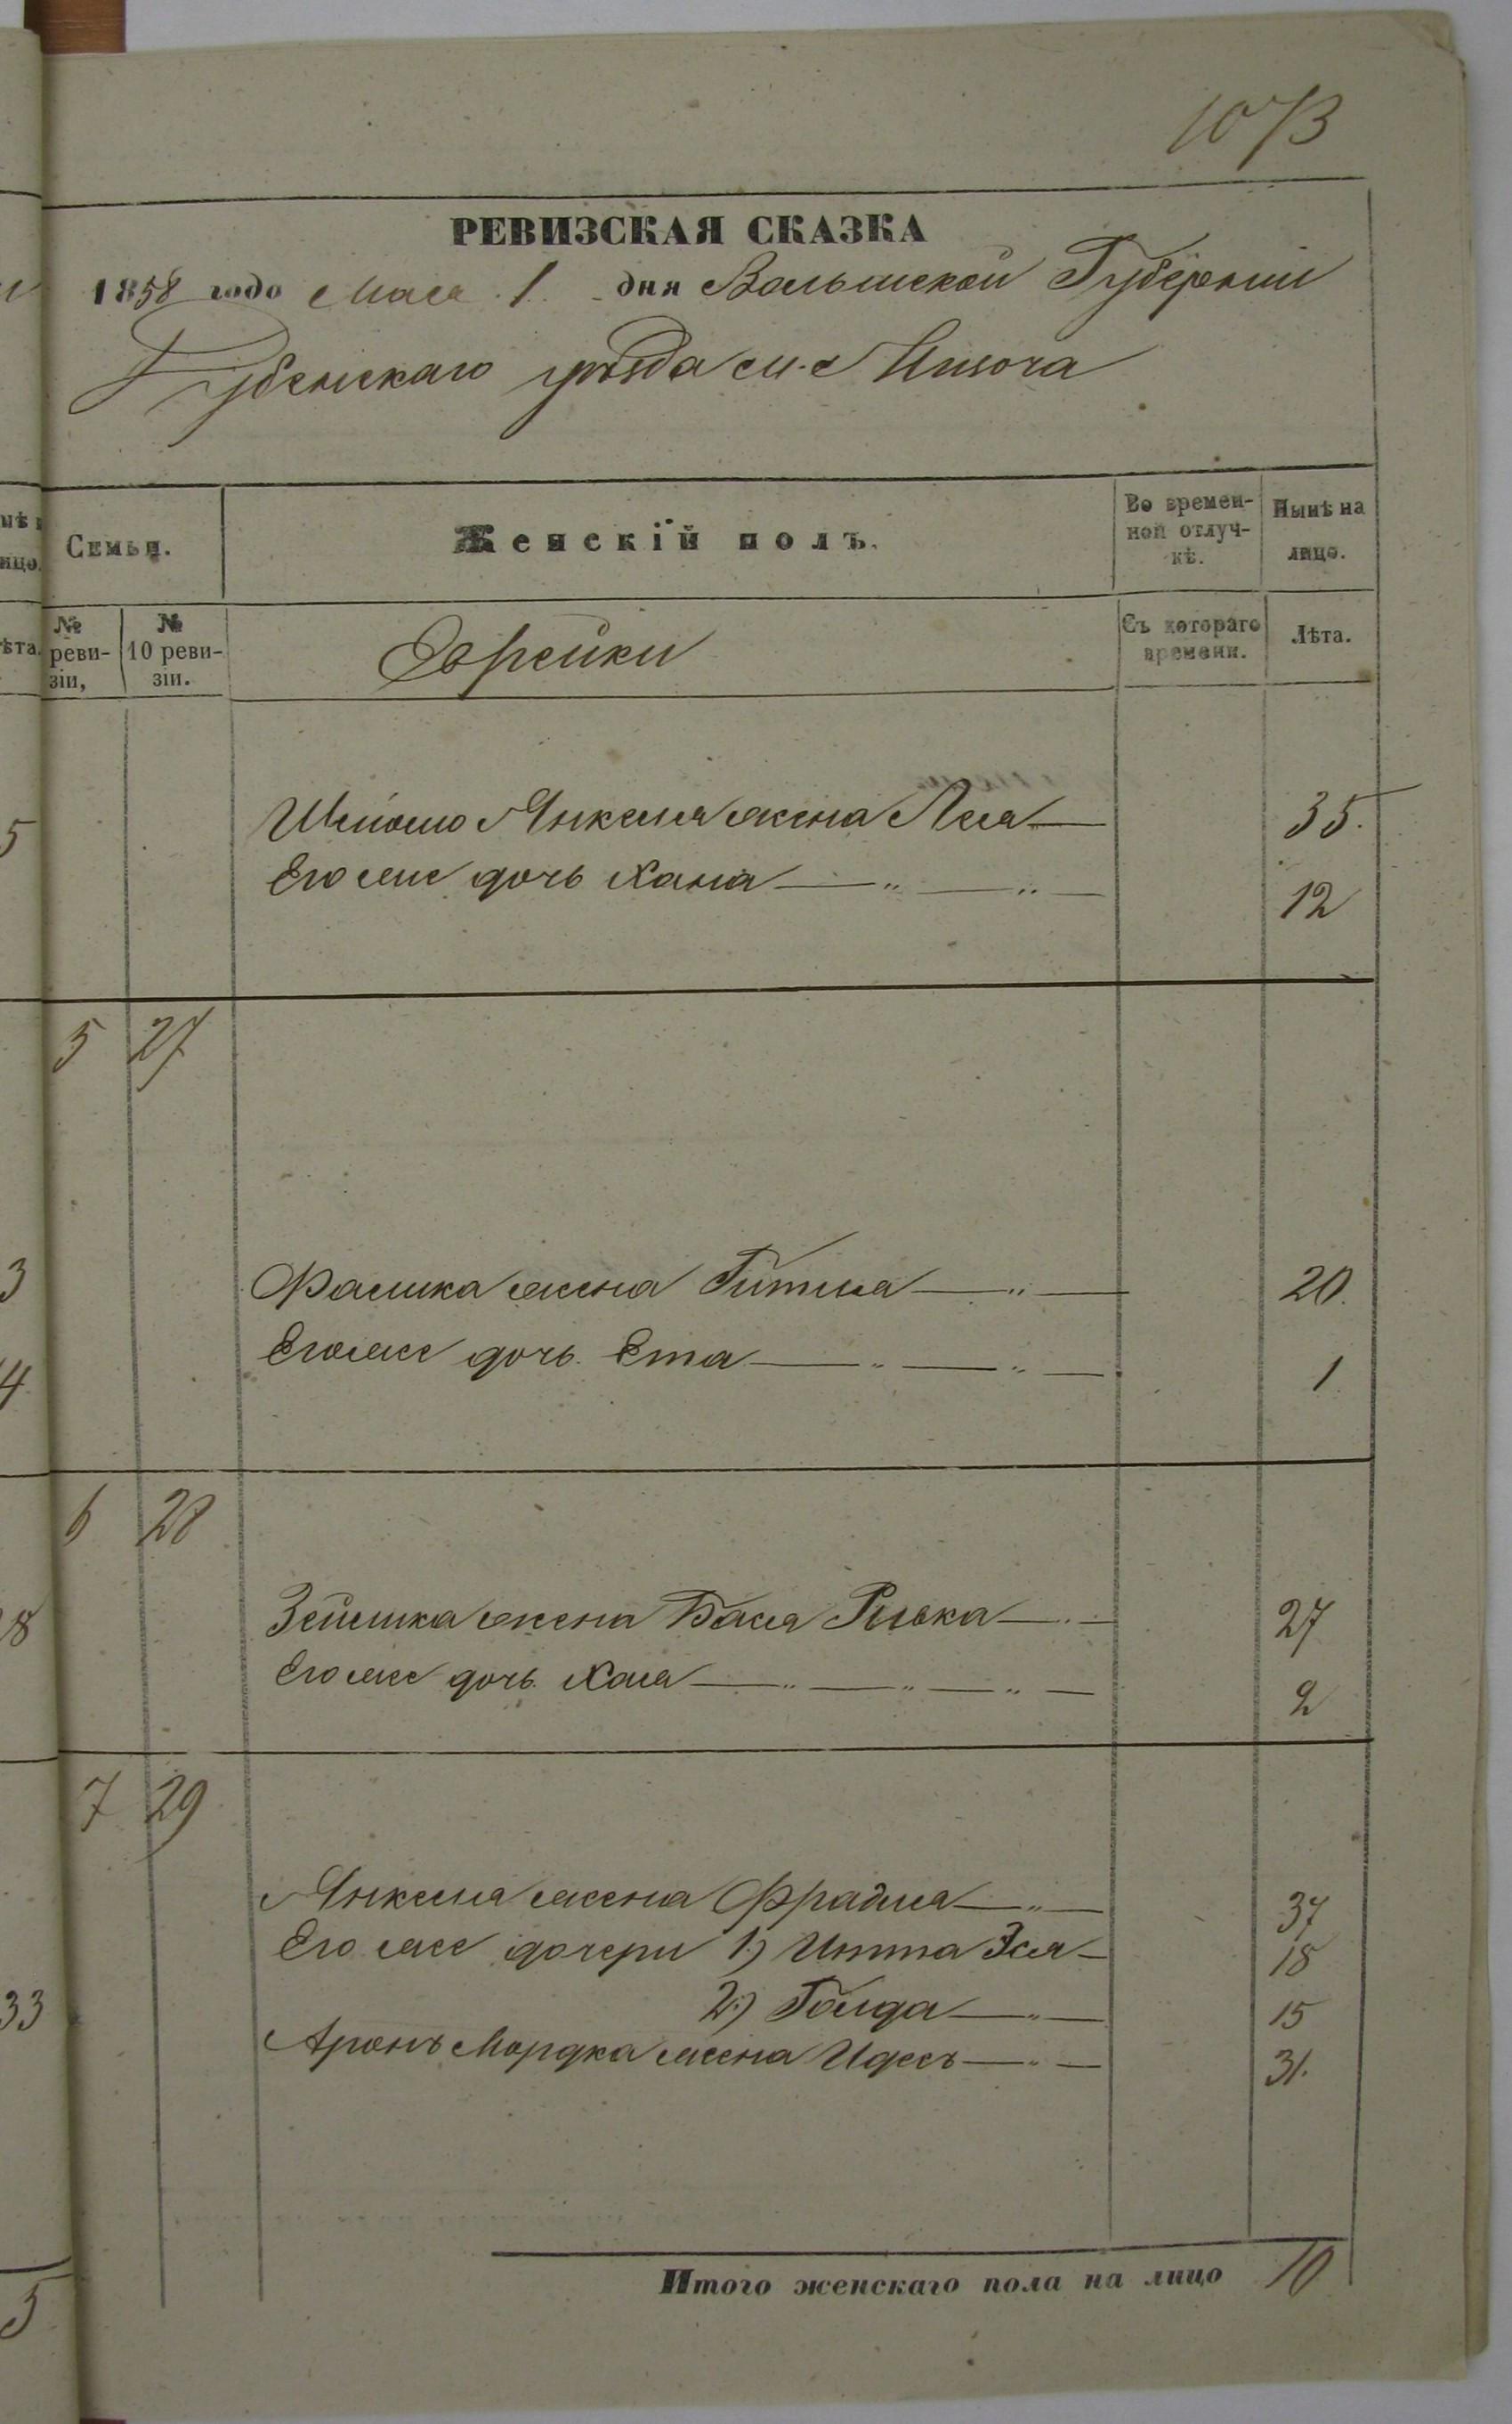 1073
РЕВИЗСКАЯ СКАЗКА
1858 года Мая 1 дня Волынской Губерніи
Дубенскаго уѣзда м-с
Семьи.
Женскій полъ.
Во времен-
ной отлуч-
кѣ.
Нынѣ на
лицо.
№
реви-
зіи,
№
10 реви-
зіи.
Еврейки
Съ котораго
времени.
Лѣта.
Шліомо Янкеля жена Лея 35.
Его же дочь Хана 12
5 27
Фалика жена Гитля 20.
Его же дочь Ета 1
6 28
Зейлика жена Бася Рывка 27
Его же дочь Хая 2
7 29
Янкеля жена Фрадля 37
Его же дочери 1.) Итта Эся 18
2.) Голда 15
Аронъ Мордка жена Идесъ 31.
Итого женскаго пола на лицо 10
5
3
4
33
5